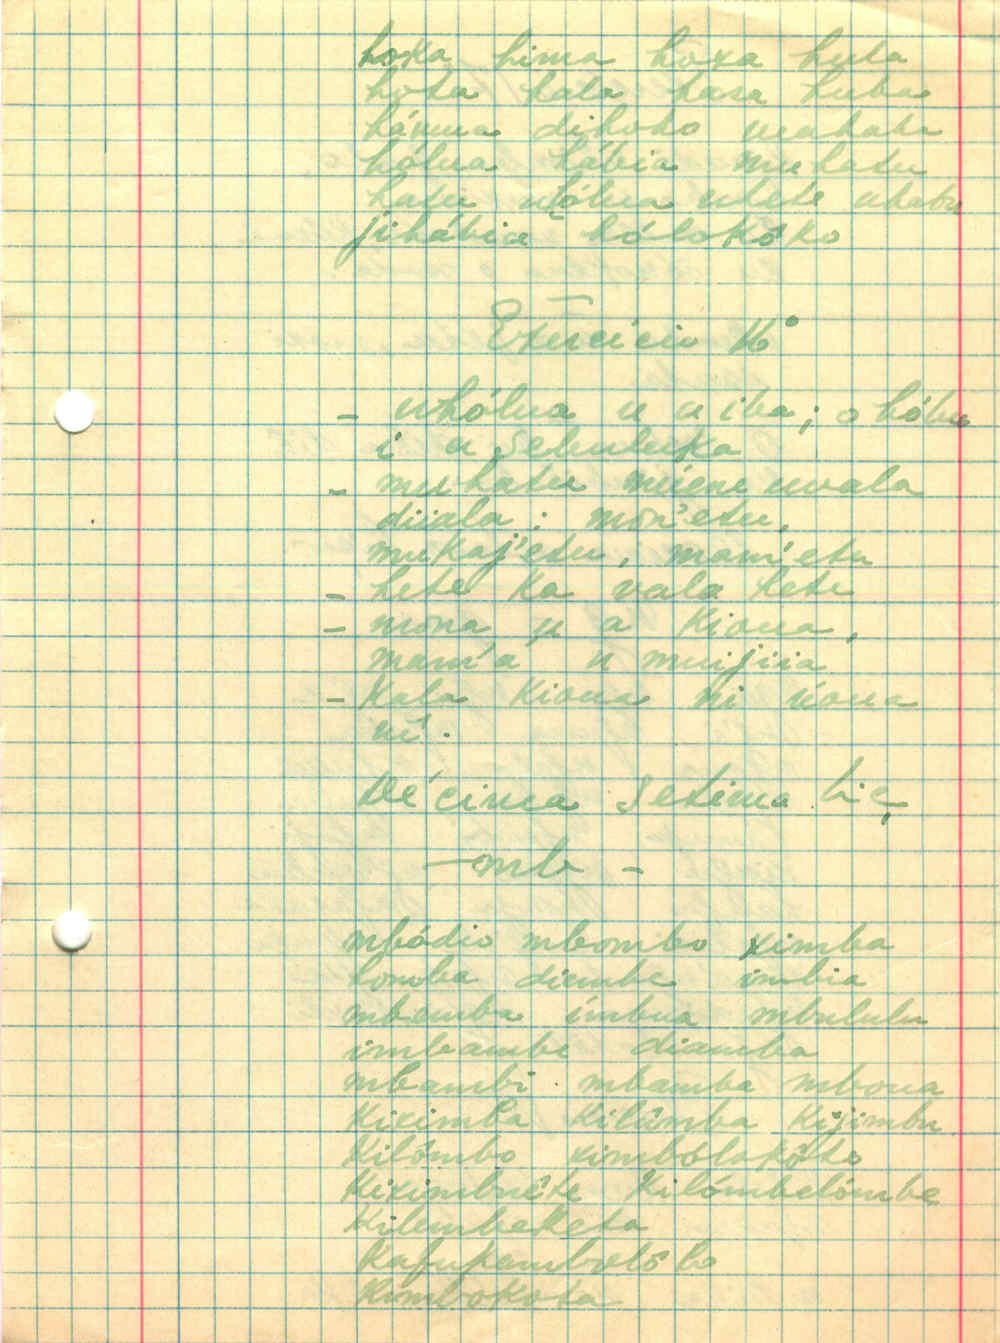 hoxa hima hoxa hula
hota hala hasa huba
háma dihoho mahaha
hólua hábia muhatu
hatu uhólua utéte uhatu
jihábia hólokôko
Exercício 16º
- uhólua u a iba; o hábia
i u sebuluka
- muhatu múene uvala
diiala: mon'etu,
mukaj'etu, mam'etu
- hete ka vala hete
- mona u a kioua,
mam'a u muijiia
- kala kioua ni úoua
uê.
Décima Setima Liç
- mb -
mbódio mbombo ximba
homba diembe imbia
mbemba ímbua mbululu
imbambe diamba
mbambi mbamba mboua
kiximba kilûmba kijimbu
kilômbo ximbólokôto
kiximbuéte kilómbelómbe
kilembeketa
kafukambolôlo
kimbokota